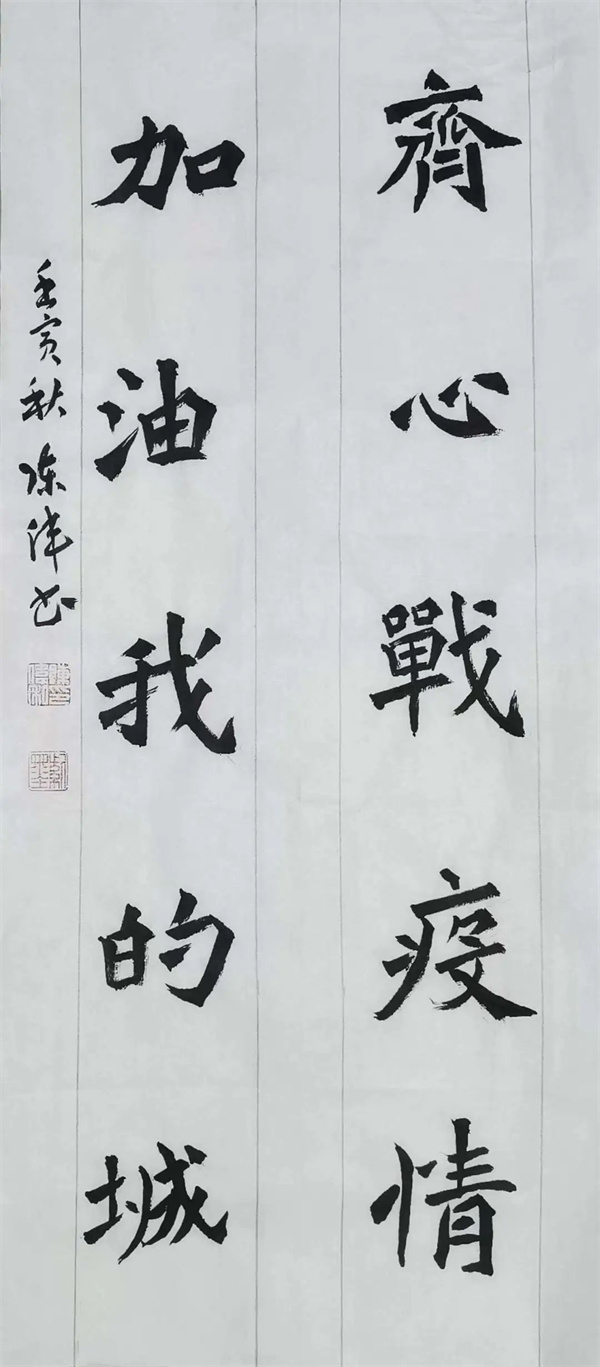 齊心戰疫情
加油我的城
壬寅秋陈津书